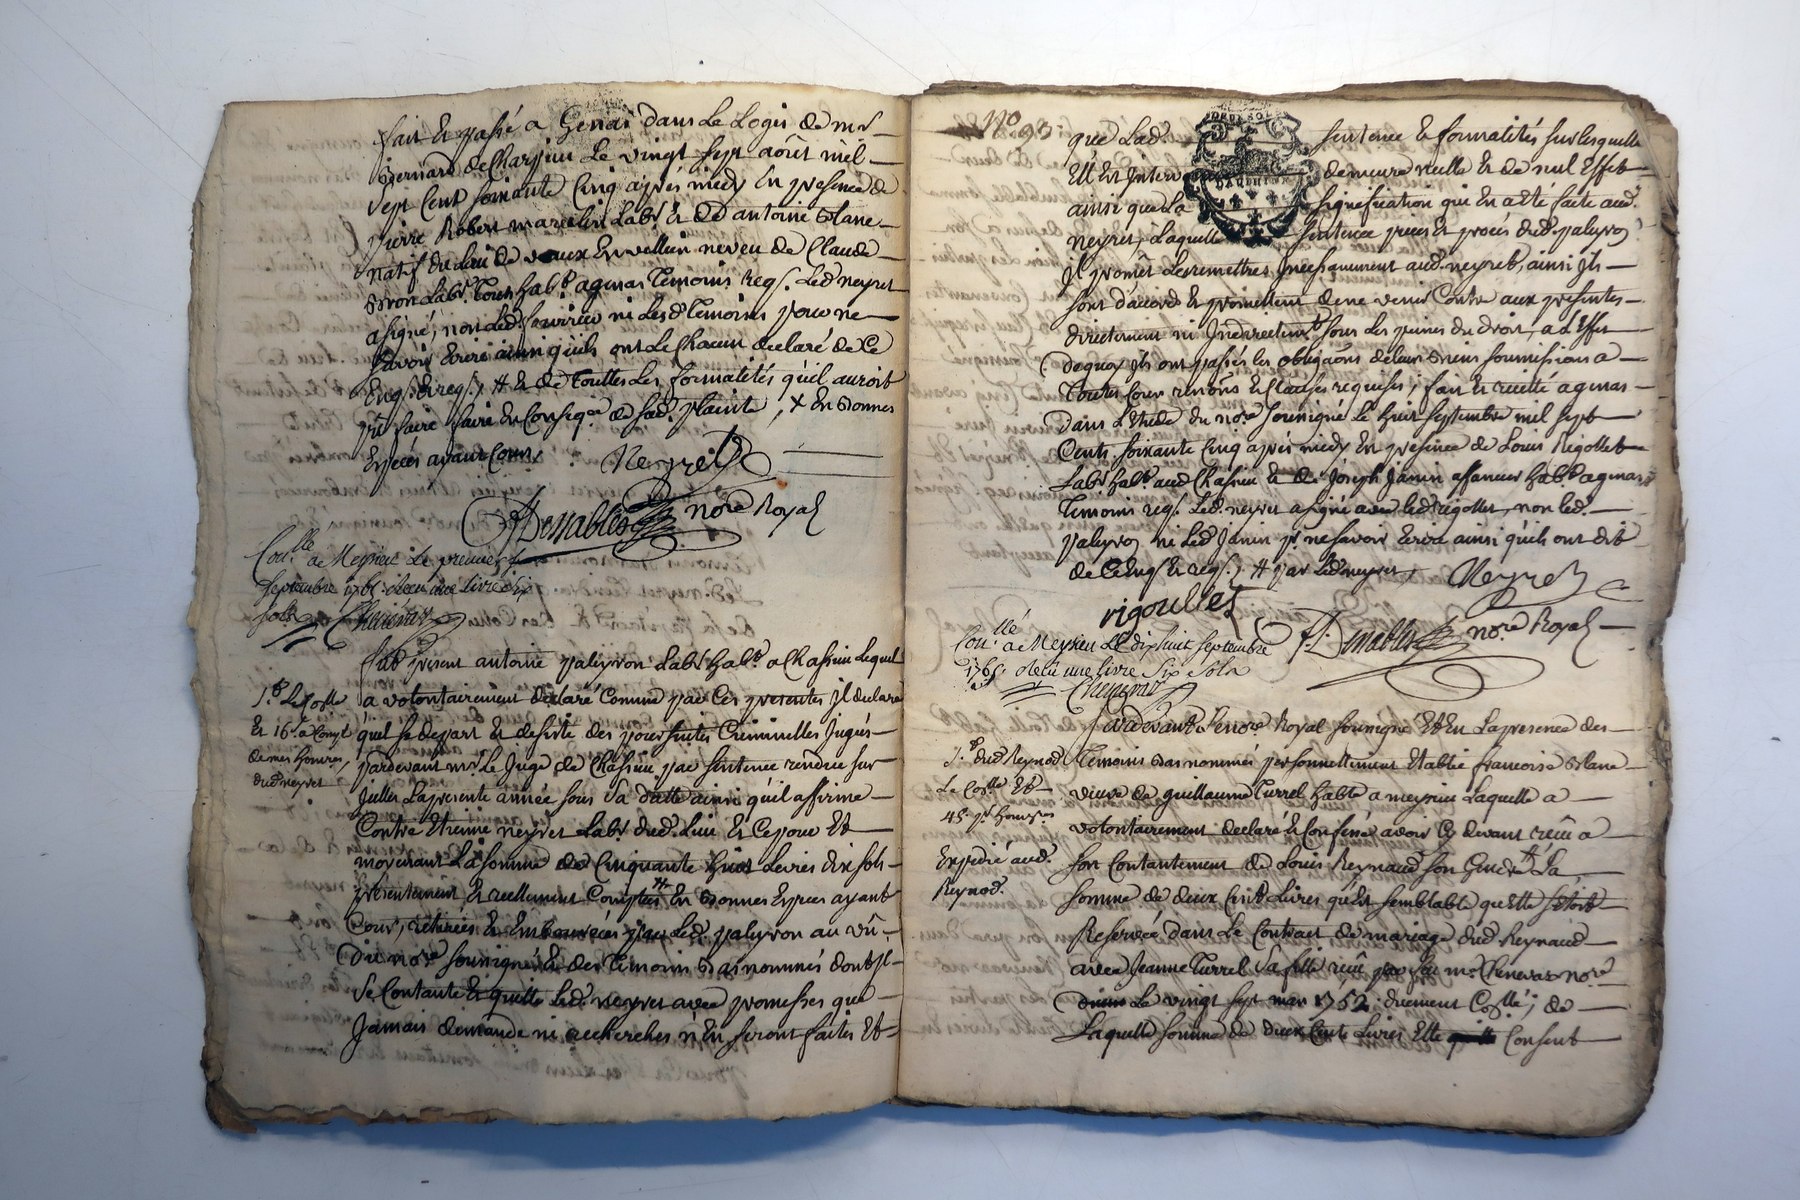 fait et passé a Genas dans Le Logis de mr
Bernard de Charpieu Le vingt sept août mil
sept Cent soixante Cinq après midy En presence de
pierre Robert marechin Labr et de antoine Blanc
natif du lieu de vaux En vellein neveu de Claude
Labr tous habts a genas Temoins reqs. Led neyret
a signé, non Led. ni Lesd Temoins pour ne
savoir Ecrire ainsi qu'ils ont Le Chacun declaré de Ce
Enqs. Et reqs., # et de Touttes Les formalités qu'il auroit
pû faire faire En Conseqce de sad. plainte, x En Bonnes
Especes ayant Cours
Neyret
Desvables nore Royal
Conlle a Meyzieu Le premier
septembre 1765. receu une livre six
sols Chenevas
fût present antoine paleyron Labr habt a Chassieu Lequel
1.re Le Colle a volontairement declaré Comme par Ces presentes Il declare
et 16s. a Compt qu'il se depart et desiste des poursuites Criminelles
de mes honres, pardevant mr. Le Juge de Chassieu par sentence rendüe sur
dud neyret
Juillet La presente année sous Sa datte ainsi qu'il affirme
Contre Etienne neyret Labr dud. Lieu et Ce pour et
moyenant La somme de Cinquante huit Livres dix sols
presentement Et réellement Comptées # En Bonnes Especes ayant
Cours, retirées et Emboursées par Led. paleyron au vû
Du nore soussigné et des Temoins Bas nommés dont Il
Se Contante et quitte Led. neyret avec promesses que
Jamais demande ni recherches n'En seront faites Et
No 93
que Lad. sentence et formalités sur lesquelle
Ell Est Interv demeure nulle et de nul Effet
ainsi que La signification qui En a été faite aud.
neyret, Laquelle sentence pieces et procés dud. paleyron
Il promêt de remettres Incessamment aud. neyret, ainsi Ils
sont d'accord et promettent de ne venir Contre aux presentes
directement ni Indirectemt sous Les peines du droit, a L'Effet
de quoy Ils ont passés les obligaons de leurs Biens soumissions a
Toutes Cours renons et Clauses requises; fait et recitté a genas
dans L'Etude du nore soussigné le huit septembre mil sept
Cents soixante Cinq après midy En presence de Louis Rigollet
Labr habt aud Chassieu et de Joseph Janin affaneur habt a genas
Temoins reqs. Led. neyret a signé avec led rigollet, non led.
paleyron ni led Janin pr ne savoir Ecrire ainsi qu'ils ont dit
de Ce Enqs et reqs., # par Led neyret, Neyret
rigoullet
Conllé a Meyzieu Le dix huit septembre Desvables nore Royal
1765. receu une livre six sols
Chenevas
pardevant Le nore Royal soussigné Et En La presence des
1.re dud Reynod Temoins Bas nommés personnellement Etablie françoise Blanc
Le Colle et veuve de guillaume Turrel habte a meyzieu Laquelle a
45s pr honres volontairement declaré et Confessé avoir Cy devant reçû a
Expedié aud. son Contantement de Louis Reynaud son Gendre La
Reynod. somme de deux Cent Livres qu'Est semblable qu'elle s'etoit
Reservée dans Le Contract de mariage dud Reynaud
avec Jeanne Turrel sa fille reçû par feu me Chenevas nore
Le vingt sept mars 1752. düement Collé; de
Laquelle somme de deux Cents Livres Elle Consent